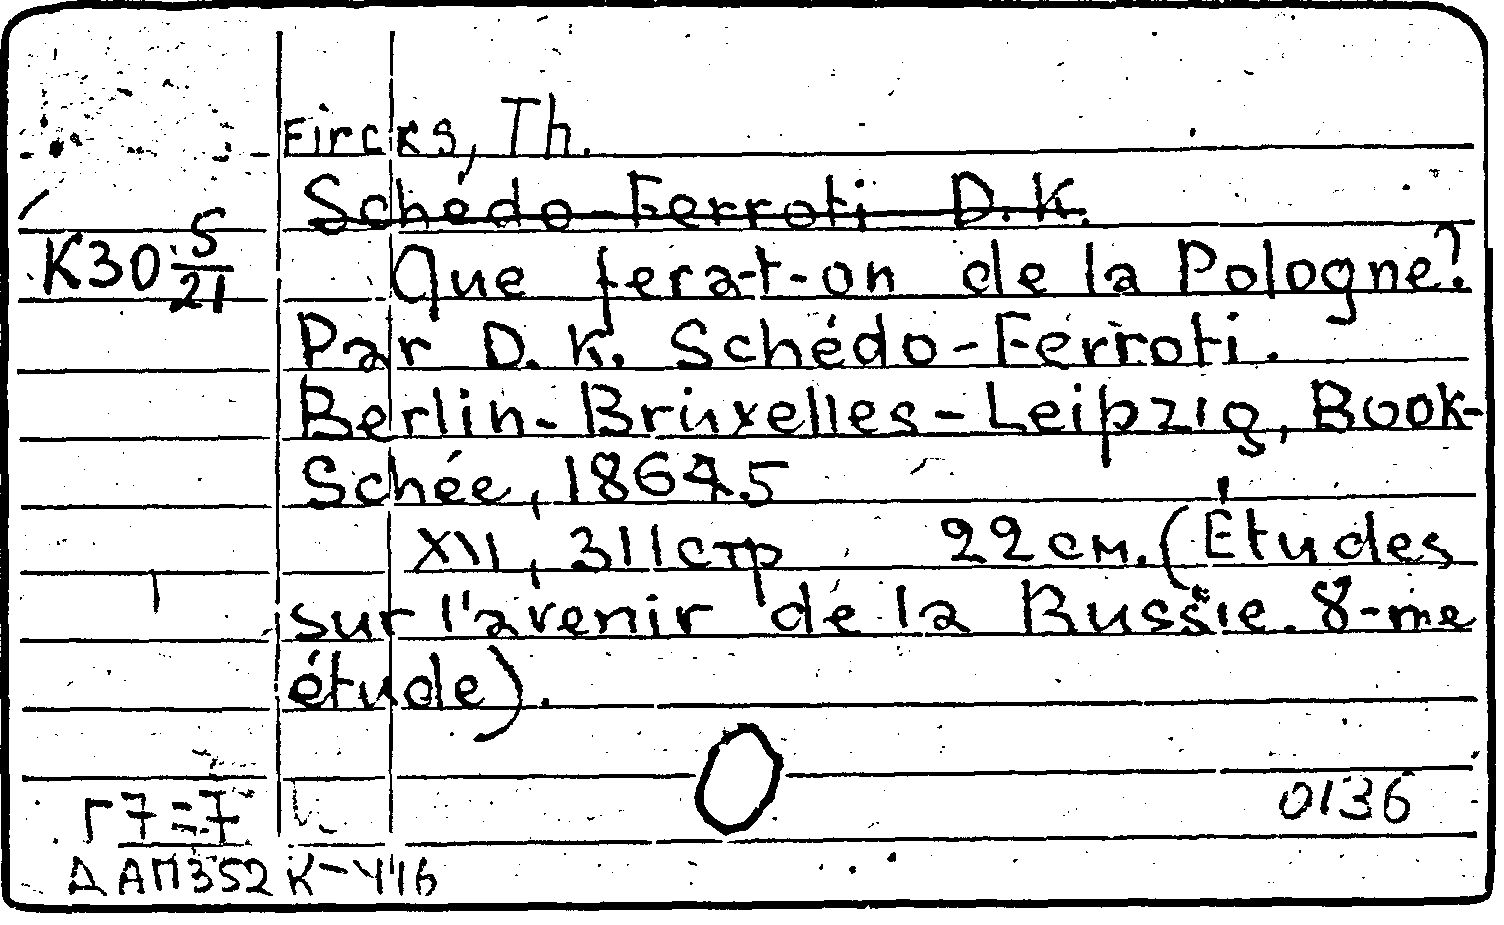 Fircks, Th.
Schédo-Ferroti D.K.
К30 S/21
Que fera-t-on de la Pologne?
Par D. K. Schédo-Ferroti.
Berlin-Bruxelles-Leipzig, Book-
Schée, 1864.5
XII, 311 стр 22 см. (Études
sur l'avenir de la Russie. 8-me
étude).
Г7=7
0136
ДАП352 К-446